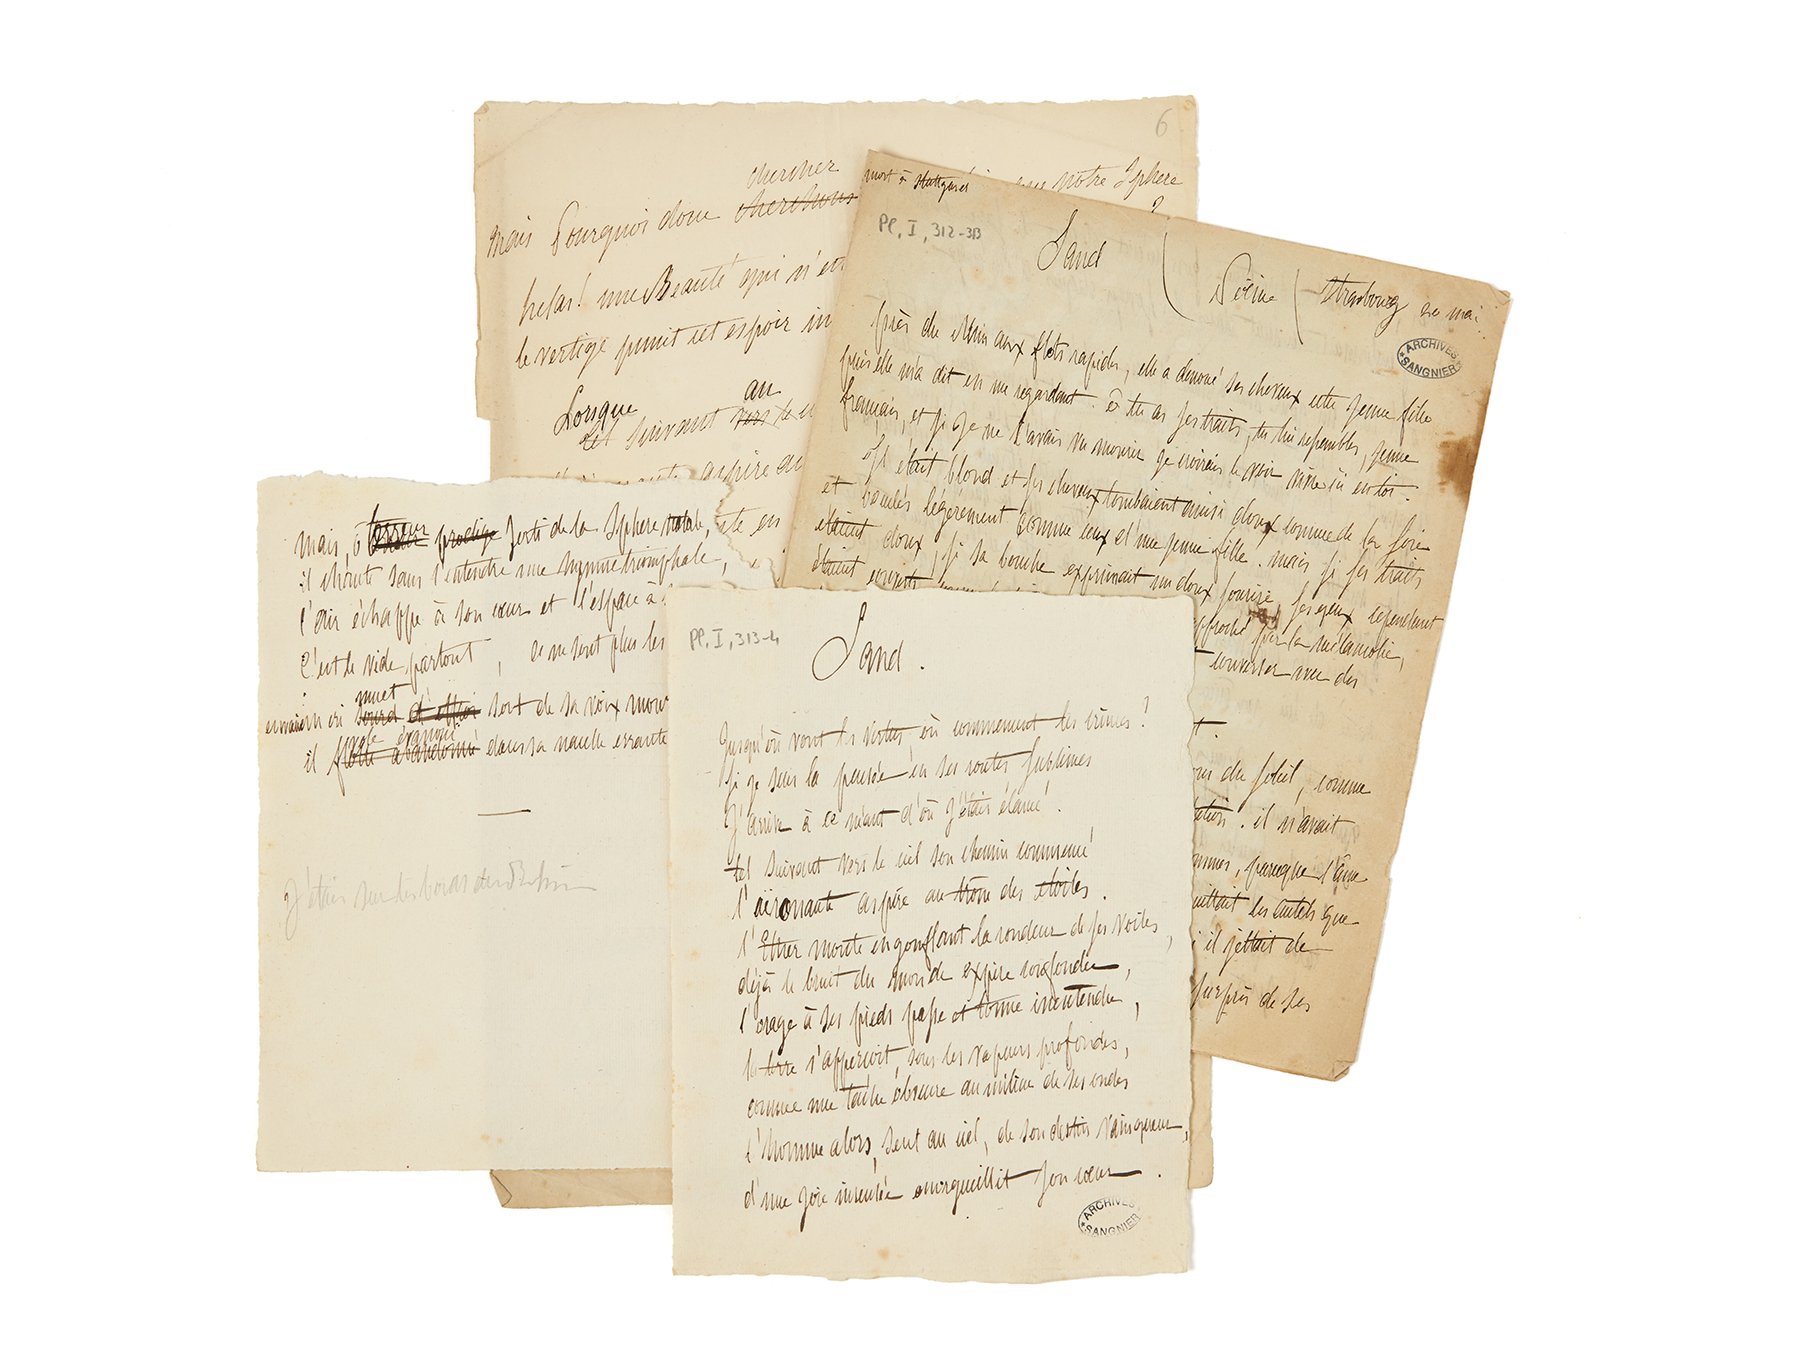 6
chercher
mais Pourquoi donc cherchons
notre Sphere
?
helas! une Beauté qui n'est
le vertige punit cet espoir in
Lorsque au
tel suivant vers le ci
aspire au
mort à Stuttgard
Pl. I, 312-313
Sand ( Poëme ( Strasbourg 20 mai
ARCHIVES SANGNIER
près du Rhin aux flots rapides, elle a denoué ses cheveux cette jeune fille
puis elle m'a dit en me regardant. O tu as ses traits, tu lui ressembles, jeune
français, et si je ne l'avais vu mourir je croirais le voir vivre ici en toi.
Il était blond et ses cheveux tombaient ainsi doux comme de la soie
et bouclés légérement comme ceux d'une jeune fille. mais si ses traits
étaient doux, si sa bouche exprimait un doux sourire, ses yeux cependant
étaient couverts
par la mélancolie,
converser avec des
t.
du soleil, comme
il n'avait
parceque l'âme
les autels que
il jettait de
de ses
mais, ô terreur prodige sorti de la Sphere natale,
il chante sans l'entendre une hymne triomphale,
l'air échappe à son cœur et l'espace à
C'est le vide partout, ce ne sont plus les
muet
en vain un cri sourd d'effroi sort de sa voix mour
vole évanoui
il flotte abandonné dans sa nacelle errante
J'étais sur les bords du Rhin
Pl. I, 313-4
Sand.
Jusqu'où vont les vertus, où commencent les crimes?
Si je suis la pensée en ses routes sublimes
J'arrive à ce néant d'où j'étais élancé.
tel suivant vers le ciel son chemin commencé
l'aëronaute aspire au trône des étoiles.
l'Ether monte en gonflant la rondeur de ses voiles,
déjà le bruit du monde expire confondu,
l'orage à ses pieds passe et tonne inentendu,
la terre s'apperçoit, sous les vapeurs profondes,
comme une tache obscure au milieu de ses ondes
l'homme alors, seul au ciel, de son destin vainqueur,
d'une joie insensée enorgueillit son cœur.
ARCHIVES SANGNIER